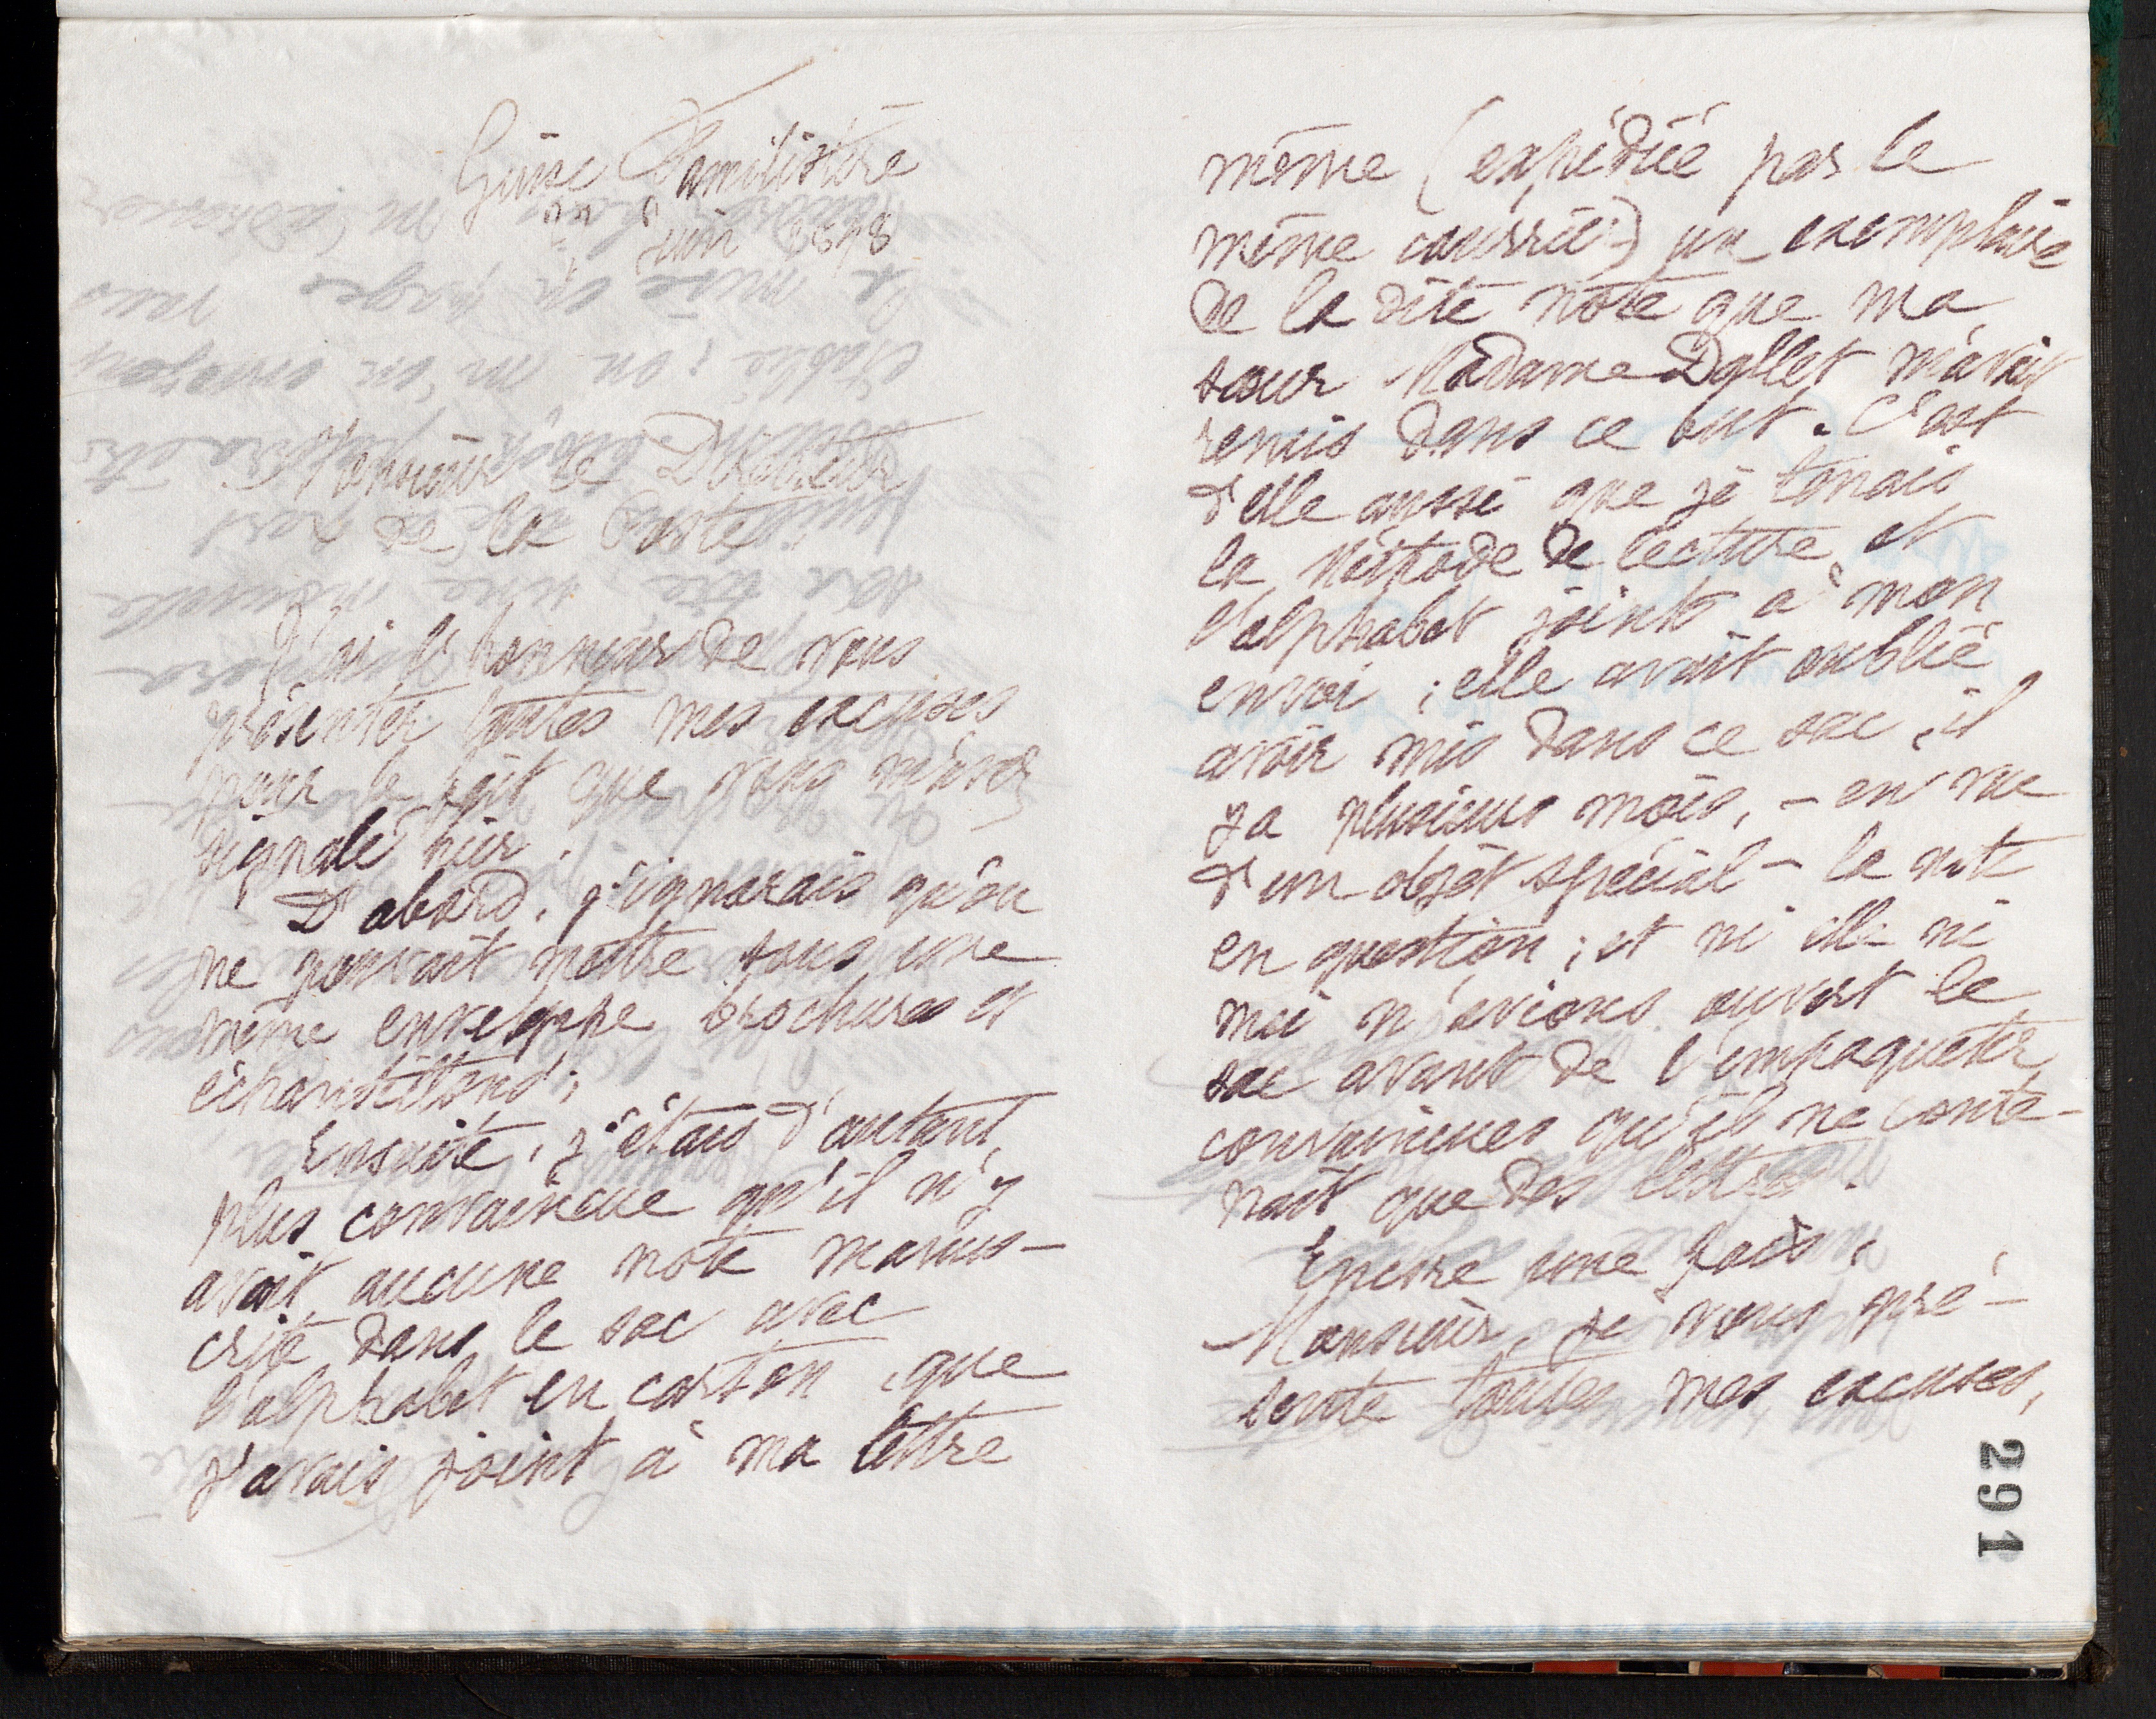 Guise Familistère
juin
Monsieur le Directeur
de la Poste
J'ai l'honneur de vous
présenter toutes mes excuses
pour le fait que vous m'avez
signalé hier.
D'abord, j'ignorais qu'on
ne pouvait mettre sous une
même enveloppe brochures et
échantillons ;
Ensuite, j'étais d'autant
plus convaincue qu'il n'y
avait aucune note manus-
crite dans le sac avec
l'alphabet en carton, que
j'avais joint à ma lettre
même (expédiée par le
même courrier) un exemplaire
de la dite note que ma
sœur Madame Dallet m'avait
remis dans ce but. C'est
d'elle aussi que je tenais
la Méthode de lecture et
l'alphabet joints à mon
envoi ; elle avait oublié
avoir mis dans ce sac, il
y a plusieurs mois, - en vue
d'un objet spécial - la note
en question ; et ni elle ni
moi n'avions ouvert le
sac avant de l'empaqueter
convaincues qu'il ne conte-
nait que des lettres.
Encore une fois,
Monsieur, je vous pré-
sente toutes mes excuses,
291